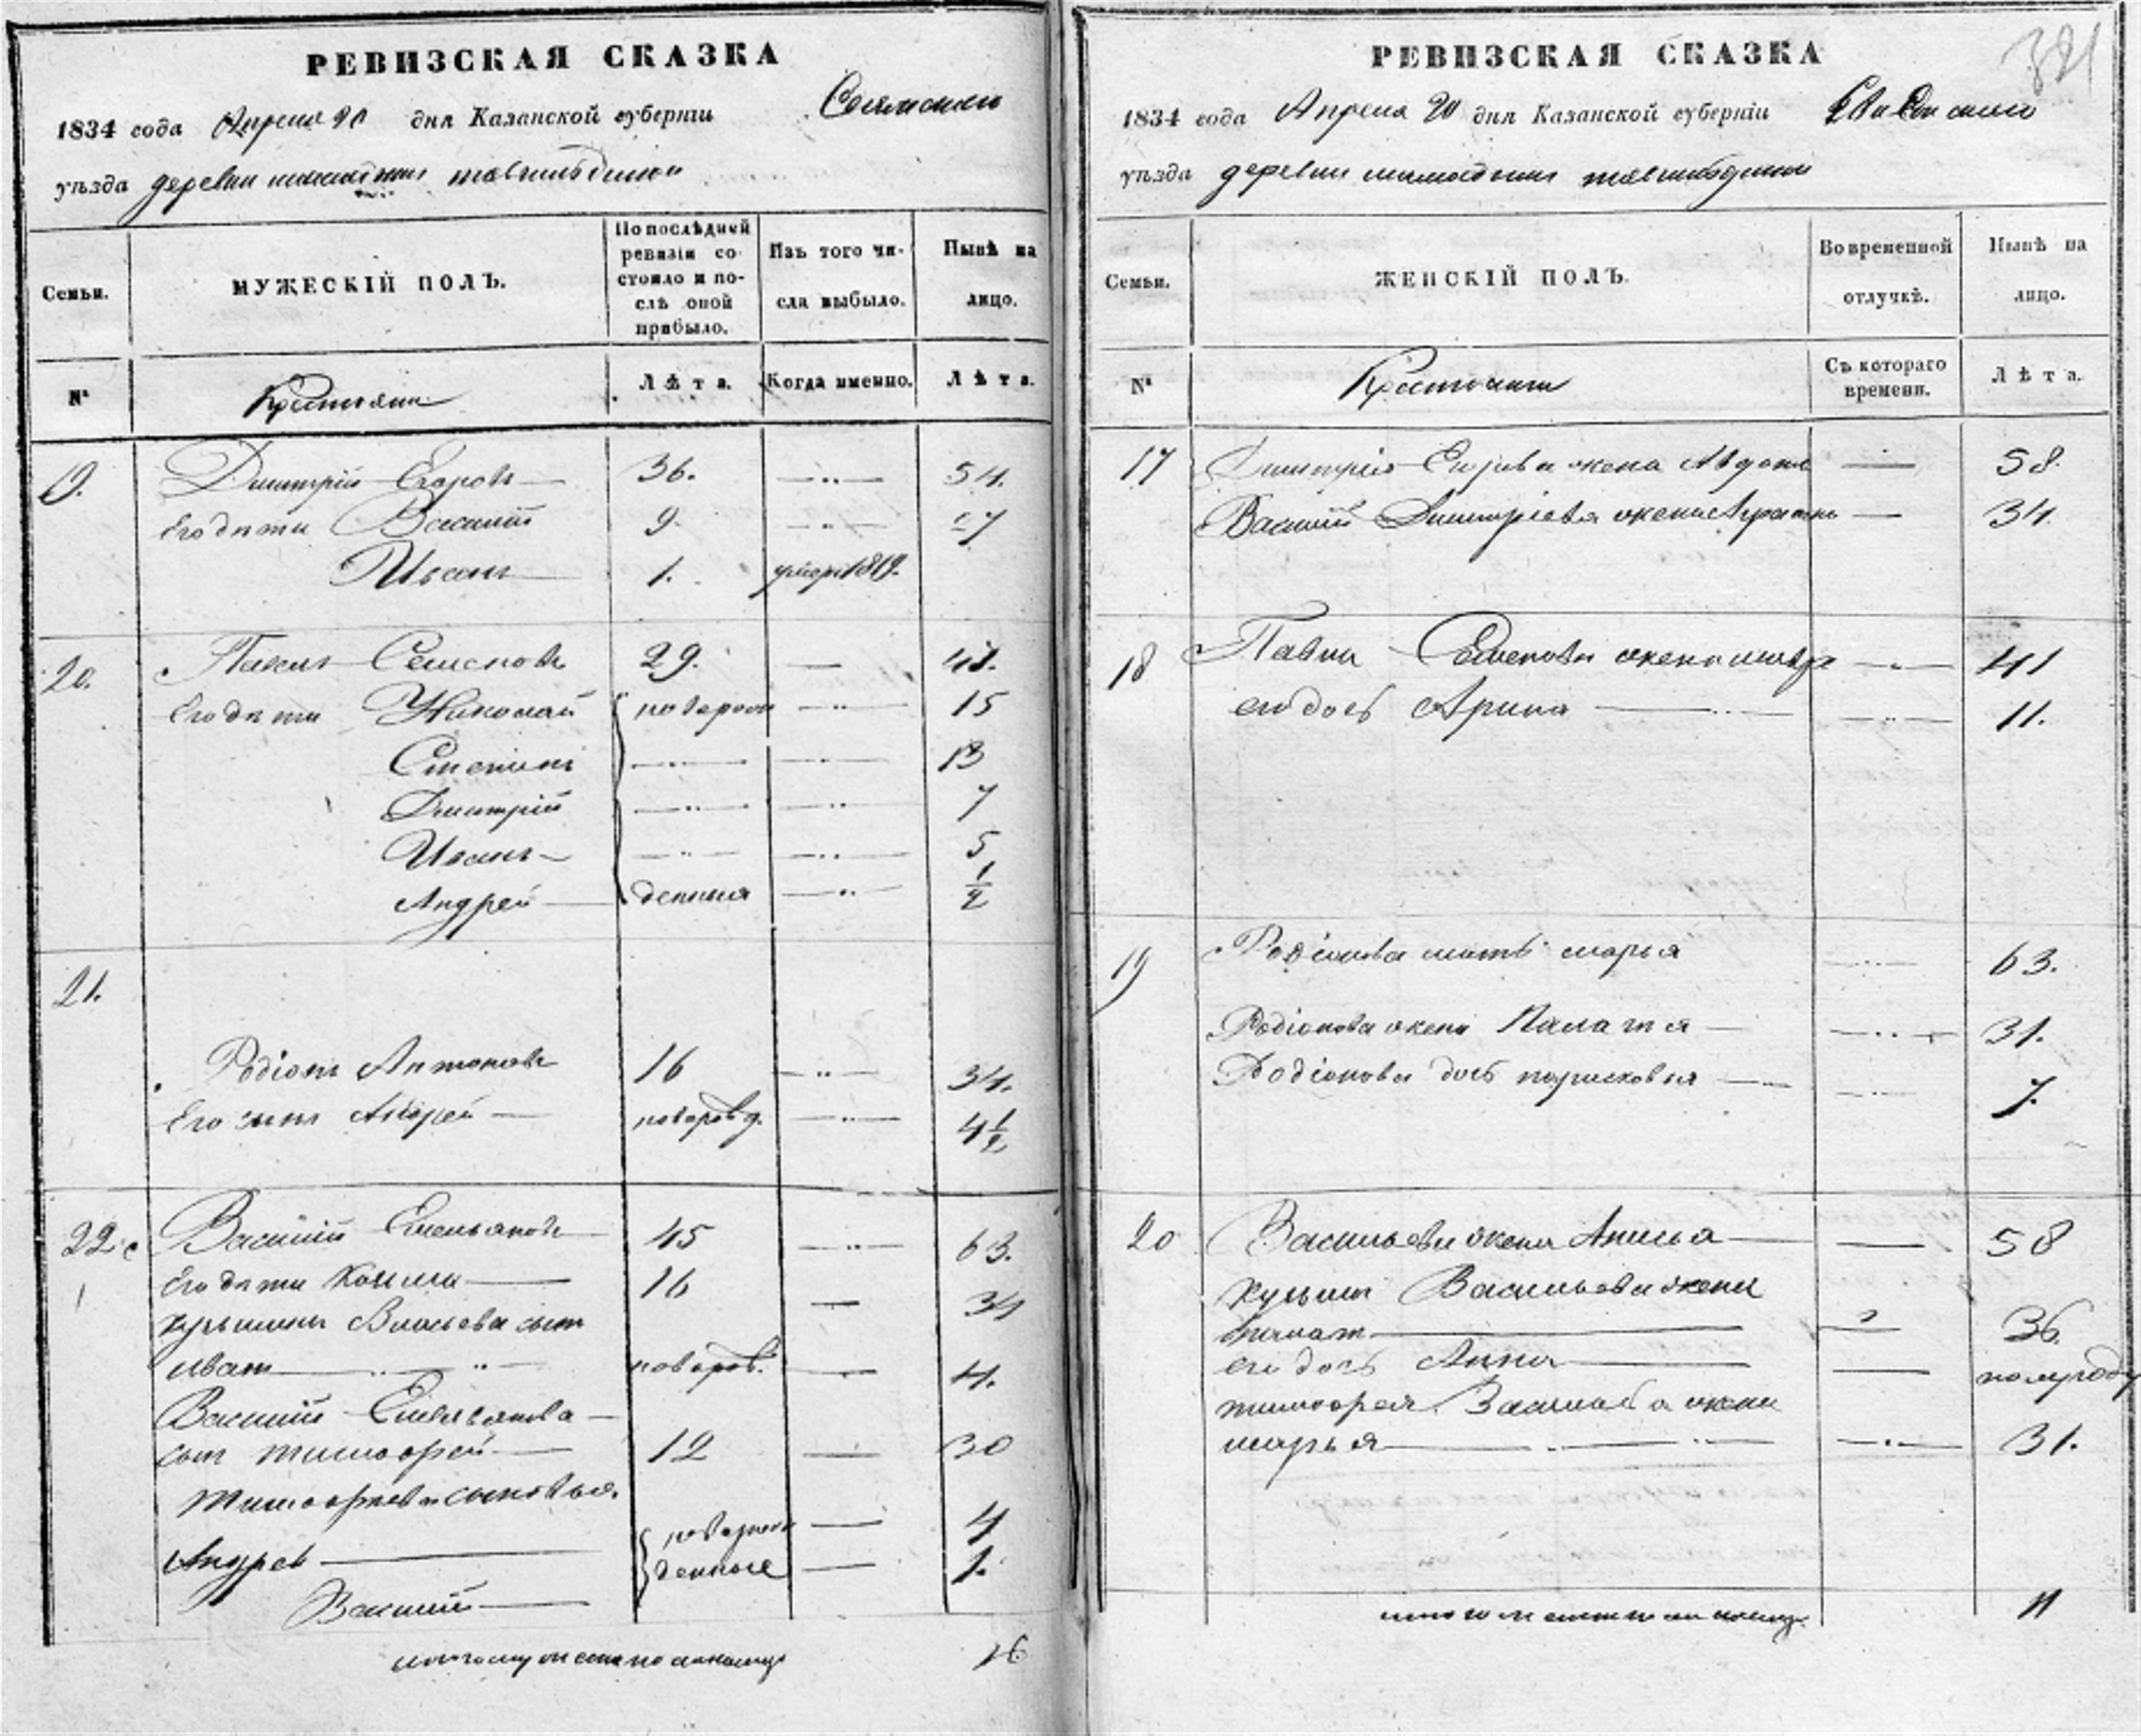 РЕВИЗСКАЯ СКАЗКА
1834 года Апреля 20 дня Казанской губерніи
уѣзда деревни
Семьи.
МУЖЕСКІЙ ПОЛЪ.
По послѣдней ревизіи состояло и послѣ оной прибыло.
Изъ того числа выбыло.
Нынѣ на лицо.
№
Крестьяни
Лѣта.
Когда именно.
Лѣта.
19. Дмитрій Егоровъ 36. 54.
Его дети Василій 9 27
Иванъ 1. умре 1819.
20. Павелъ Семеновъ 29.
Его дети Николай новорож 15
Степанъ 13
Дмитрій 7
Иванъ 5
Андрей денныя 1/2
21.
Родіонъ Антоновъ 16 34.
Его сынъ Андрей новорожд. 4 1/2
22. Василій Емельяновъ 45 63.
Его дети Козма 16 34
сынъ
Иванъ новорож. 4.
Василій Емельянова
сынъ тимофей 12 30
Тимофеева сыновья
Андрей новорож 4
денные 1.
Василій
16
РЕВИЗСКАЯ СКАЗКА
321
1834 года Апреля 20 дня Казанской губерніи
уѣзда деревни
Семьи.
ЖЕНСКІЙ ПОЛЪ.
Во временной отлучкѣ.
Нынѣ на лицо.
№
Крестьяни
Съ котораго времени.
Лѣта.
17 Дмитрія Егорова жена Авдотья 58.
Василій Дмитріева жена 34.
18 Павла Семенова жена 41
его дочь Арина 11.
19 Родіонова мать марья 63.
Родіонова жена Палагея 31.
Родіонова дочь парасковья 7.
20 Васильева жена Анисья 58
кузьмы Васильева жена
36.
его дочь Анна полугоду
тимофея Васильева жена
марья 31.
11